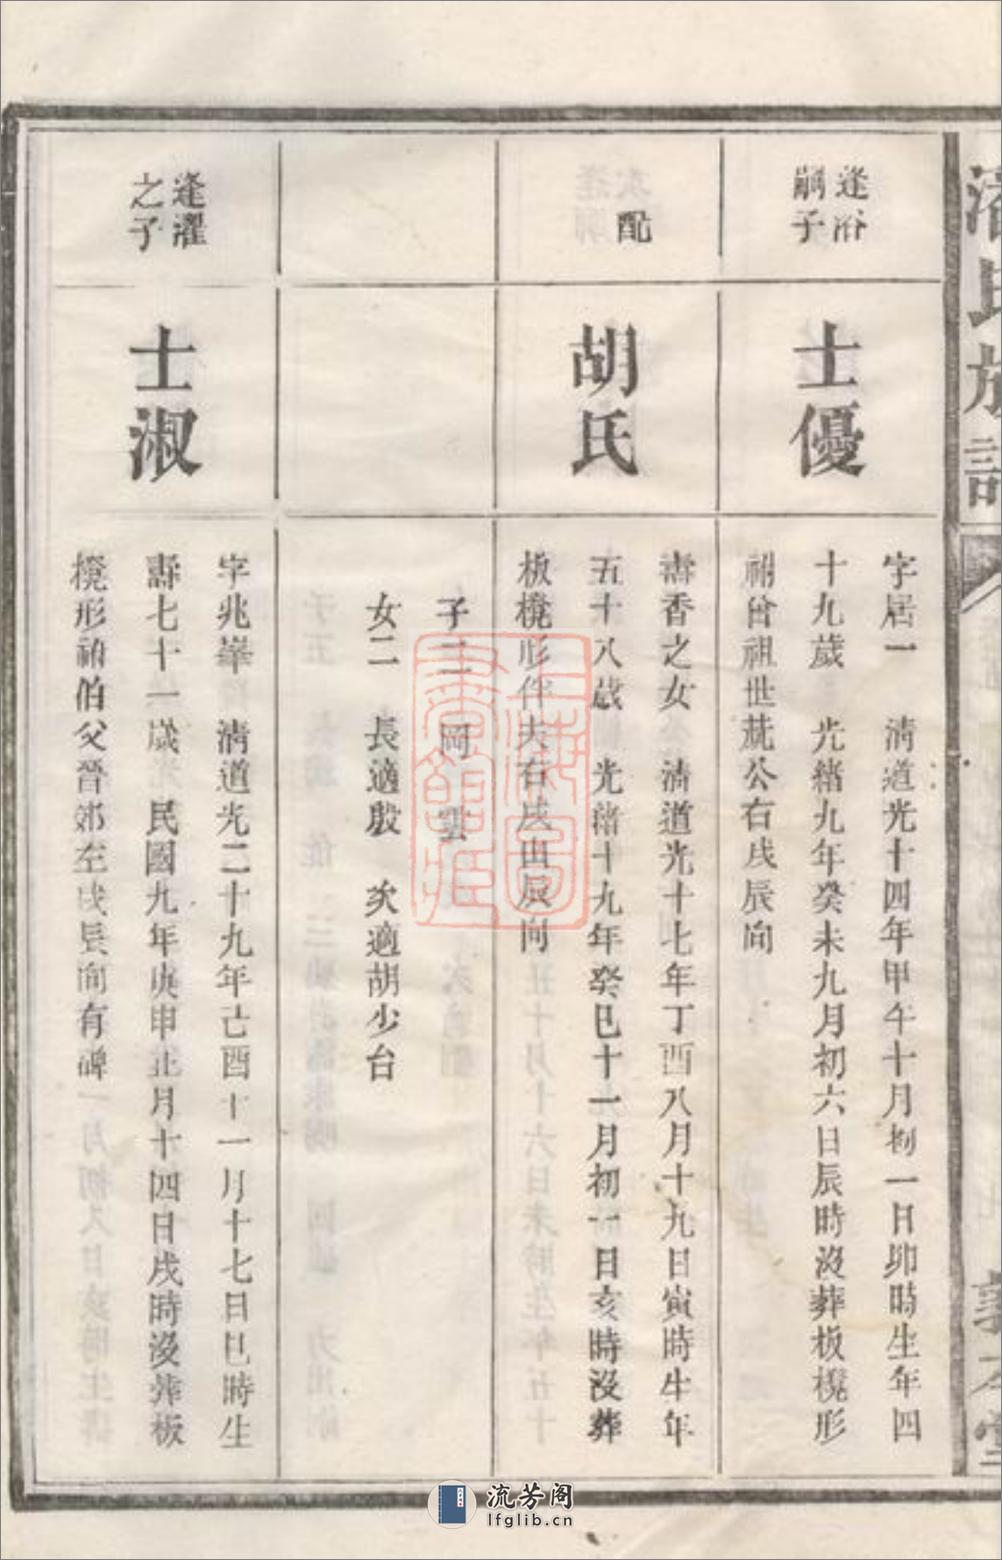 氏族譜
逢浴
嗣子
士優
字居一　清道光十四年甲午十月初一日卯時生年四
十九歲　光緒九年癸未九月初六日辰時沒葬板櫈形
祔曾祖世兟公右戌辰向
配
胡氏
壽香之女　清道光十七年丁酉八月十九日寅時生年
五十八歲　光緒十九年癸巳十一月初一日亥時沒葬
板櫈形伴夫右戌山辰向
子二　岡　雲
女二　長適殷　次適胡少台
逢濯
之子
士淑
字兆峯　清道光二十九年己酉十一月十七日巳時生
壽七十一歲　民國九年庚申正月十四日戌時沒葬板
櫈形祔伯父晉郊左戌辰向有碑
上海圖
書館藏
流芳阁
lfglib.cn